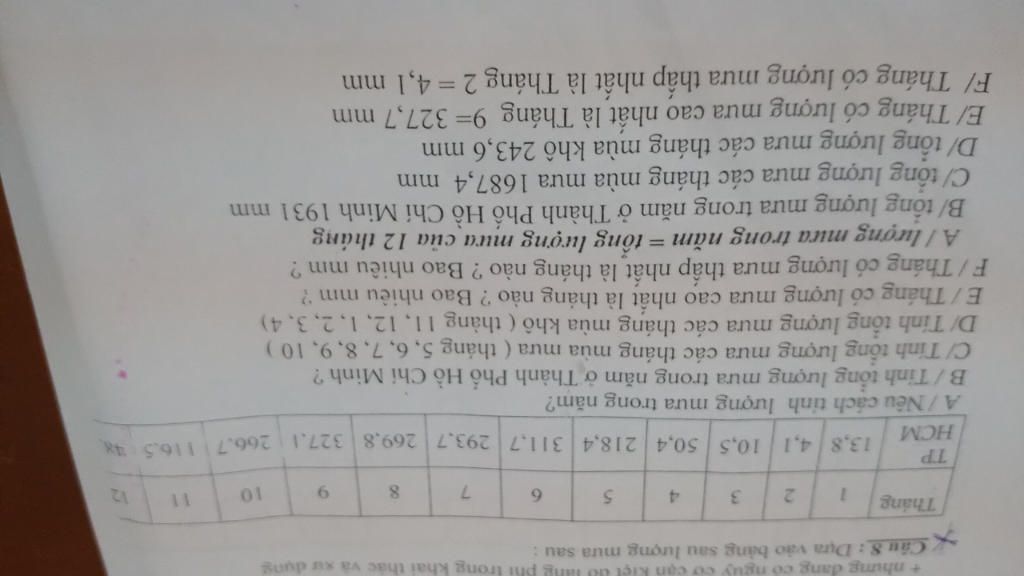 + nhưng đang có nguy cơ cạn kiệt do lãng phí trong khai thác và sử dụng
Câu 8 : Dựa vào bảng sau lượng mưa sau :
Tháng 1 2 3 4 5 6 7 8 9 10 11 12
TP HCM 13,8 4,1 10,5 50,4 218,4 311,7 293,7 269,8 327,1 266,7 116,5 48
A / Nêu cách tính lượng mưa trong năm?
B / Tính tổng lượng mưa trong năm ở Thành Phố Hồ Chí Minh ?
C/ Tính tổng lượng mưa các tháng mùa mưa ( tháng 5, 6, 7, 8, 9, 10 )
D/ Tính tổng lượng mưa các tháng mùa khô ( tháng 11, 12, 1, 2, 3, 4 )
E / Tháng có lượng mưa cao nhất là tháng nào ? Bao nhiêu mm ?
F / Tháng có lượng mưa thấp nhất là tháng nào ? Bao nhiêu mm ?
A / lượng mưa trong năm = tổng lượng mưa của 12 tháng
B/ tổng lượng mưa trong năm ở Thành Phố Hồ Chí Minh 1931 mm
C/ tổng lượng mưa các tháng mùa mưa 1687,4 mm
D/ tổng lượng mưa các tháng mùa khô 243,6 mm
E/ Tháng có lượng mưa cao nhất là Tháng 9= 327,7 mm
F/ Tháng có lượng mưa thấp nhất là Tháng 2 = 4,1 mm